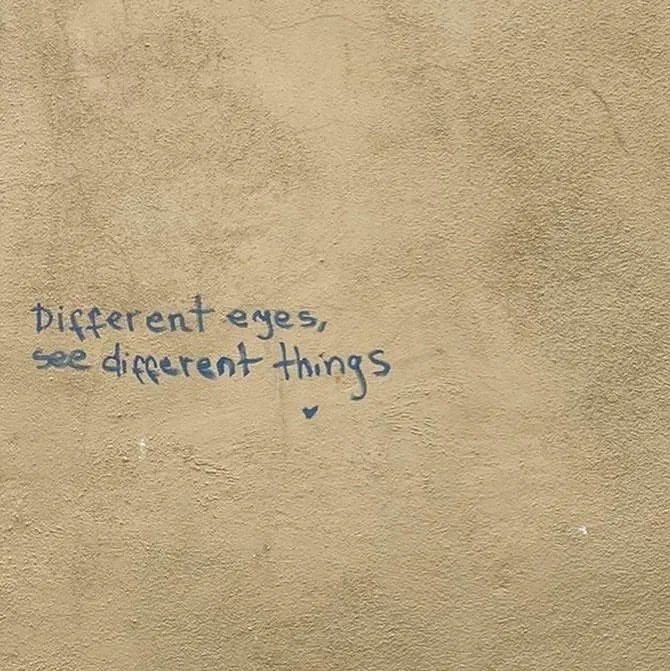 Different eyes,
see different things